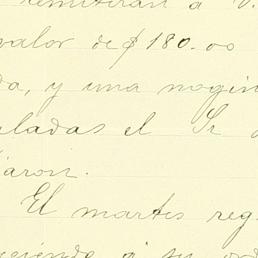 remitirán á V.
valor de $180.00
da, y una mogin
uladas el Sr
aron.
El martes reg